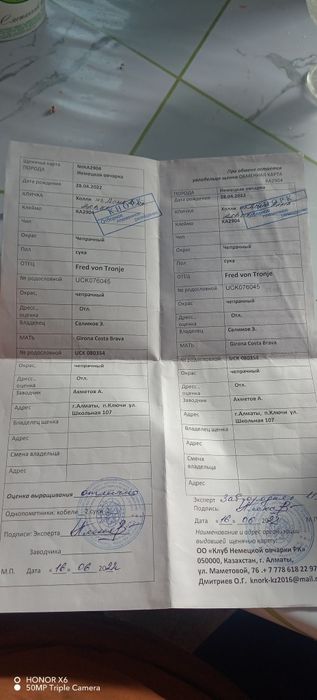 Щенячья карта №КА2904
ПОРОДА Немецкая овчарка
Дата рождения 28.04.2022
КЛИЧКА Холли из Дома
Клеймо КА2904
Чип
Окрас Чепрачный
Пол сука
ОТЕЦ Fred von Tronje
№ родословной UCK076045
Окрас, чепрачный
Дресс., оценка Отл.
Владелец Салимов З.
МАТЬ Girona Costa Brava
№ родословной UCK 080354
Окрас, чепрачный
Дресс., оценка Отл.
Заводчик Ахметов А.
Адрес г.Алматы, п.Ключи ул. Школьная 107
Владелец щенка
Адрес
Смена владельца
Адрес
Оценка выращивания отлично
Однопометники: кобели 2 суки
Подписи: Эксперта
Заводчика
М.П. Дата «16» 06 2022
При обмене остается
владельцу щенка ОБМЕННАЯ КАРТА
КА2904
ПОРОДА Немецкая овчарка
Дата рождения 28.04.2022
КЛИЧКА Холли
Клеймо КА2904
Чип
Окрас Чепрачный
Пол сука
ОТЕЦ Fred von Tronje
№ родословной UCK076045
Окрас, чепрачный
Дресс., оценка Отл.
Владелец Салимов З.
МАТЬ Girona Costa Brava
№ родословной UCK 080354
Окрас, чепрачный
Дресс., оценка Отл.
Заводчик Ахметов А.
Адрес г.Алматы, п.Ключи ул. Школьная 107
Владелец щенка
Адрес
Смена владельца
Адрес
Эксперт
Подпись:
Дата «16» 06 2022
Наименование и адрес организации
выдавшей щенячью карту:
ОО «Клуб Немецкой овчарки РК»
050000, Казахстан, г. Алматы,
ул. Маметовой, 76 .+ 7 778 618 22 97
Дмитриев О.Г. knork-kz2016@mail.
HONOR X6
50MP Triple Camera